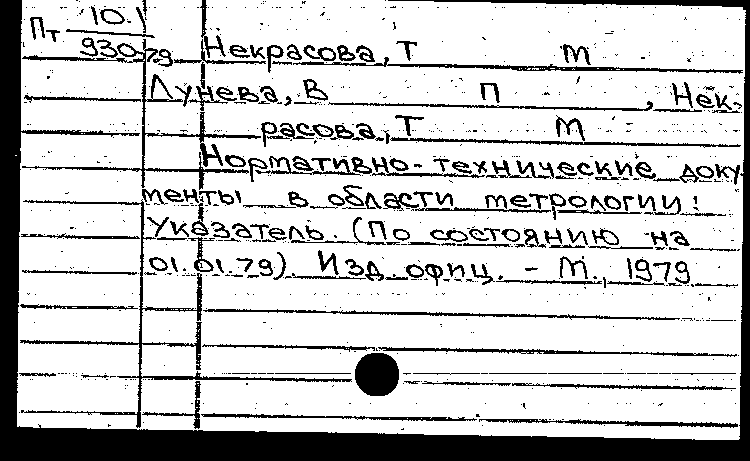 Пт 10.1
930-79 Некрасова, Т М
Лунева, В П , Нек-
расова, Т М
Нормативно-технические доку-
менты в области метрологии:
Указатель. (По состоянию на
01.01.79) Изд. офиц. - М., 1979